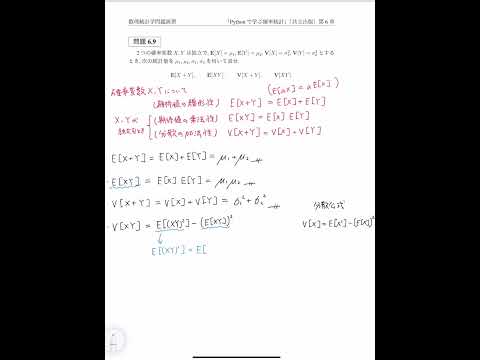 数理統計学問題演習 「Pythonで学ぶ確率統計」(共立出版) 第6章
問題 6.9
2つの確率変数 X, Y は独立で, E[X] = μ₁, E[Y] = μ₂, V[X] = σ₁², V[Y] = σ₂² とする
とき, 次の統計量を μ₁, μ₂, σ₁, σ₂ を用いて表せ.
E[X+Y], E[XY], V[X+Y], V[XY]
確率変数X,Yについて (E[aX] = aE[X])
(期待値の線形性) E[X+Y] = E[X]+E[Y]
X,Yが独立なとき
(期待値の乗法性) E[XY] = E[X] E[Y]
(分散の加法性) V[X+Y] = V[X]+V[Y]
E[X+Y] = E[X]+E[Y] = μ₁+μ₂
・E[XY] = E[X] E[Y] = μ₁μ₂
V[X+Y] = V[X]+V[Y] = σ₁²+σ₂²
分散公式
・V[XY] = E[(XY)²]-(E[XY])² V[X]=E[X²]-(E[X])²
E[(XY)²] = E[